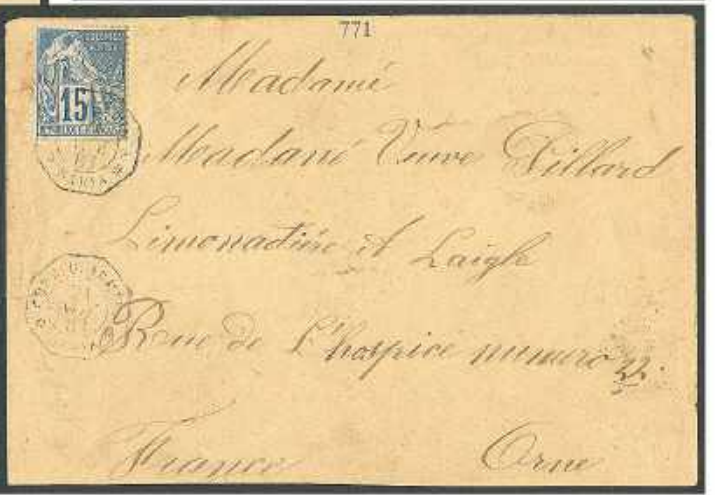 771
COLONIES
15
Madame
Madame Veuve Dillard
Limonadière à Laigle
Rue de l'hospice numero 32.
France Orne